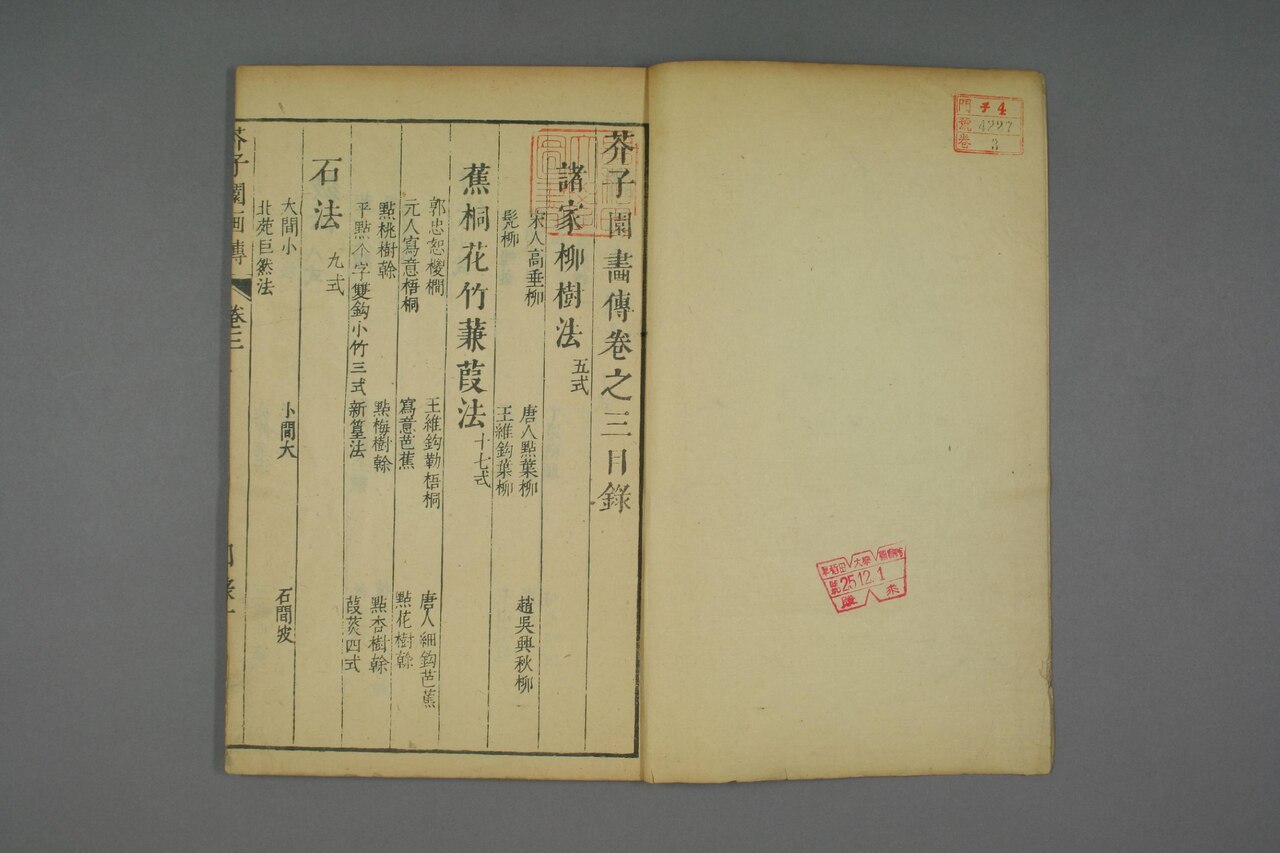 門 チ 4
號 4227
卷 3
早稻田大學圖書
號 25.12.1
購求
芥子園畫傳卷之三目錄
諸家柳樹法 五式
宋人高垂柳 唐人點葉柳 趙吳興秋柳
髡柳 王維鈎葉柳
蕉桐花竹蒹葭法 十七式
郭忠恕椶櫚 王維鈎勒梧桐 唐人細鈎芭蕉
元人寫意梧桐 寫意芭蕉 點花樹榦
點桃樹榦 點梅樹榦 點杏樹榦
平點个字雙鈎小竹三式 新篁法 葭菼四式
石法 九式
大間小 小間大 石間坡
北苑巨然法
芥子園画傳 卷三 目錄